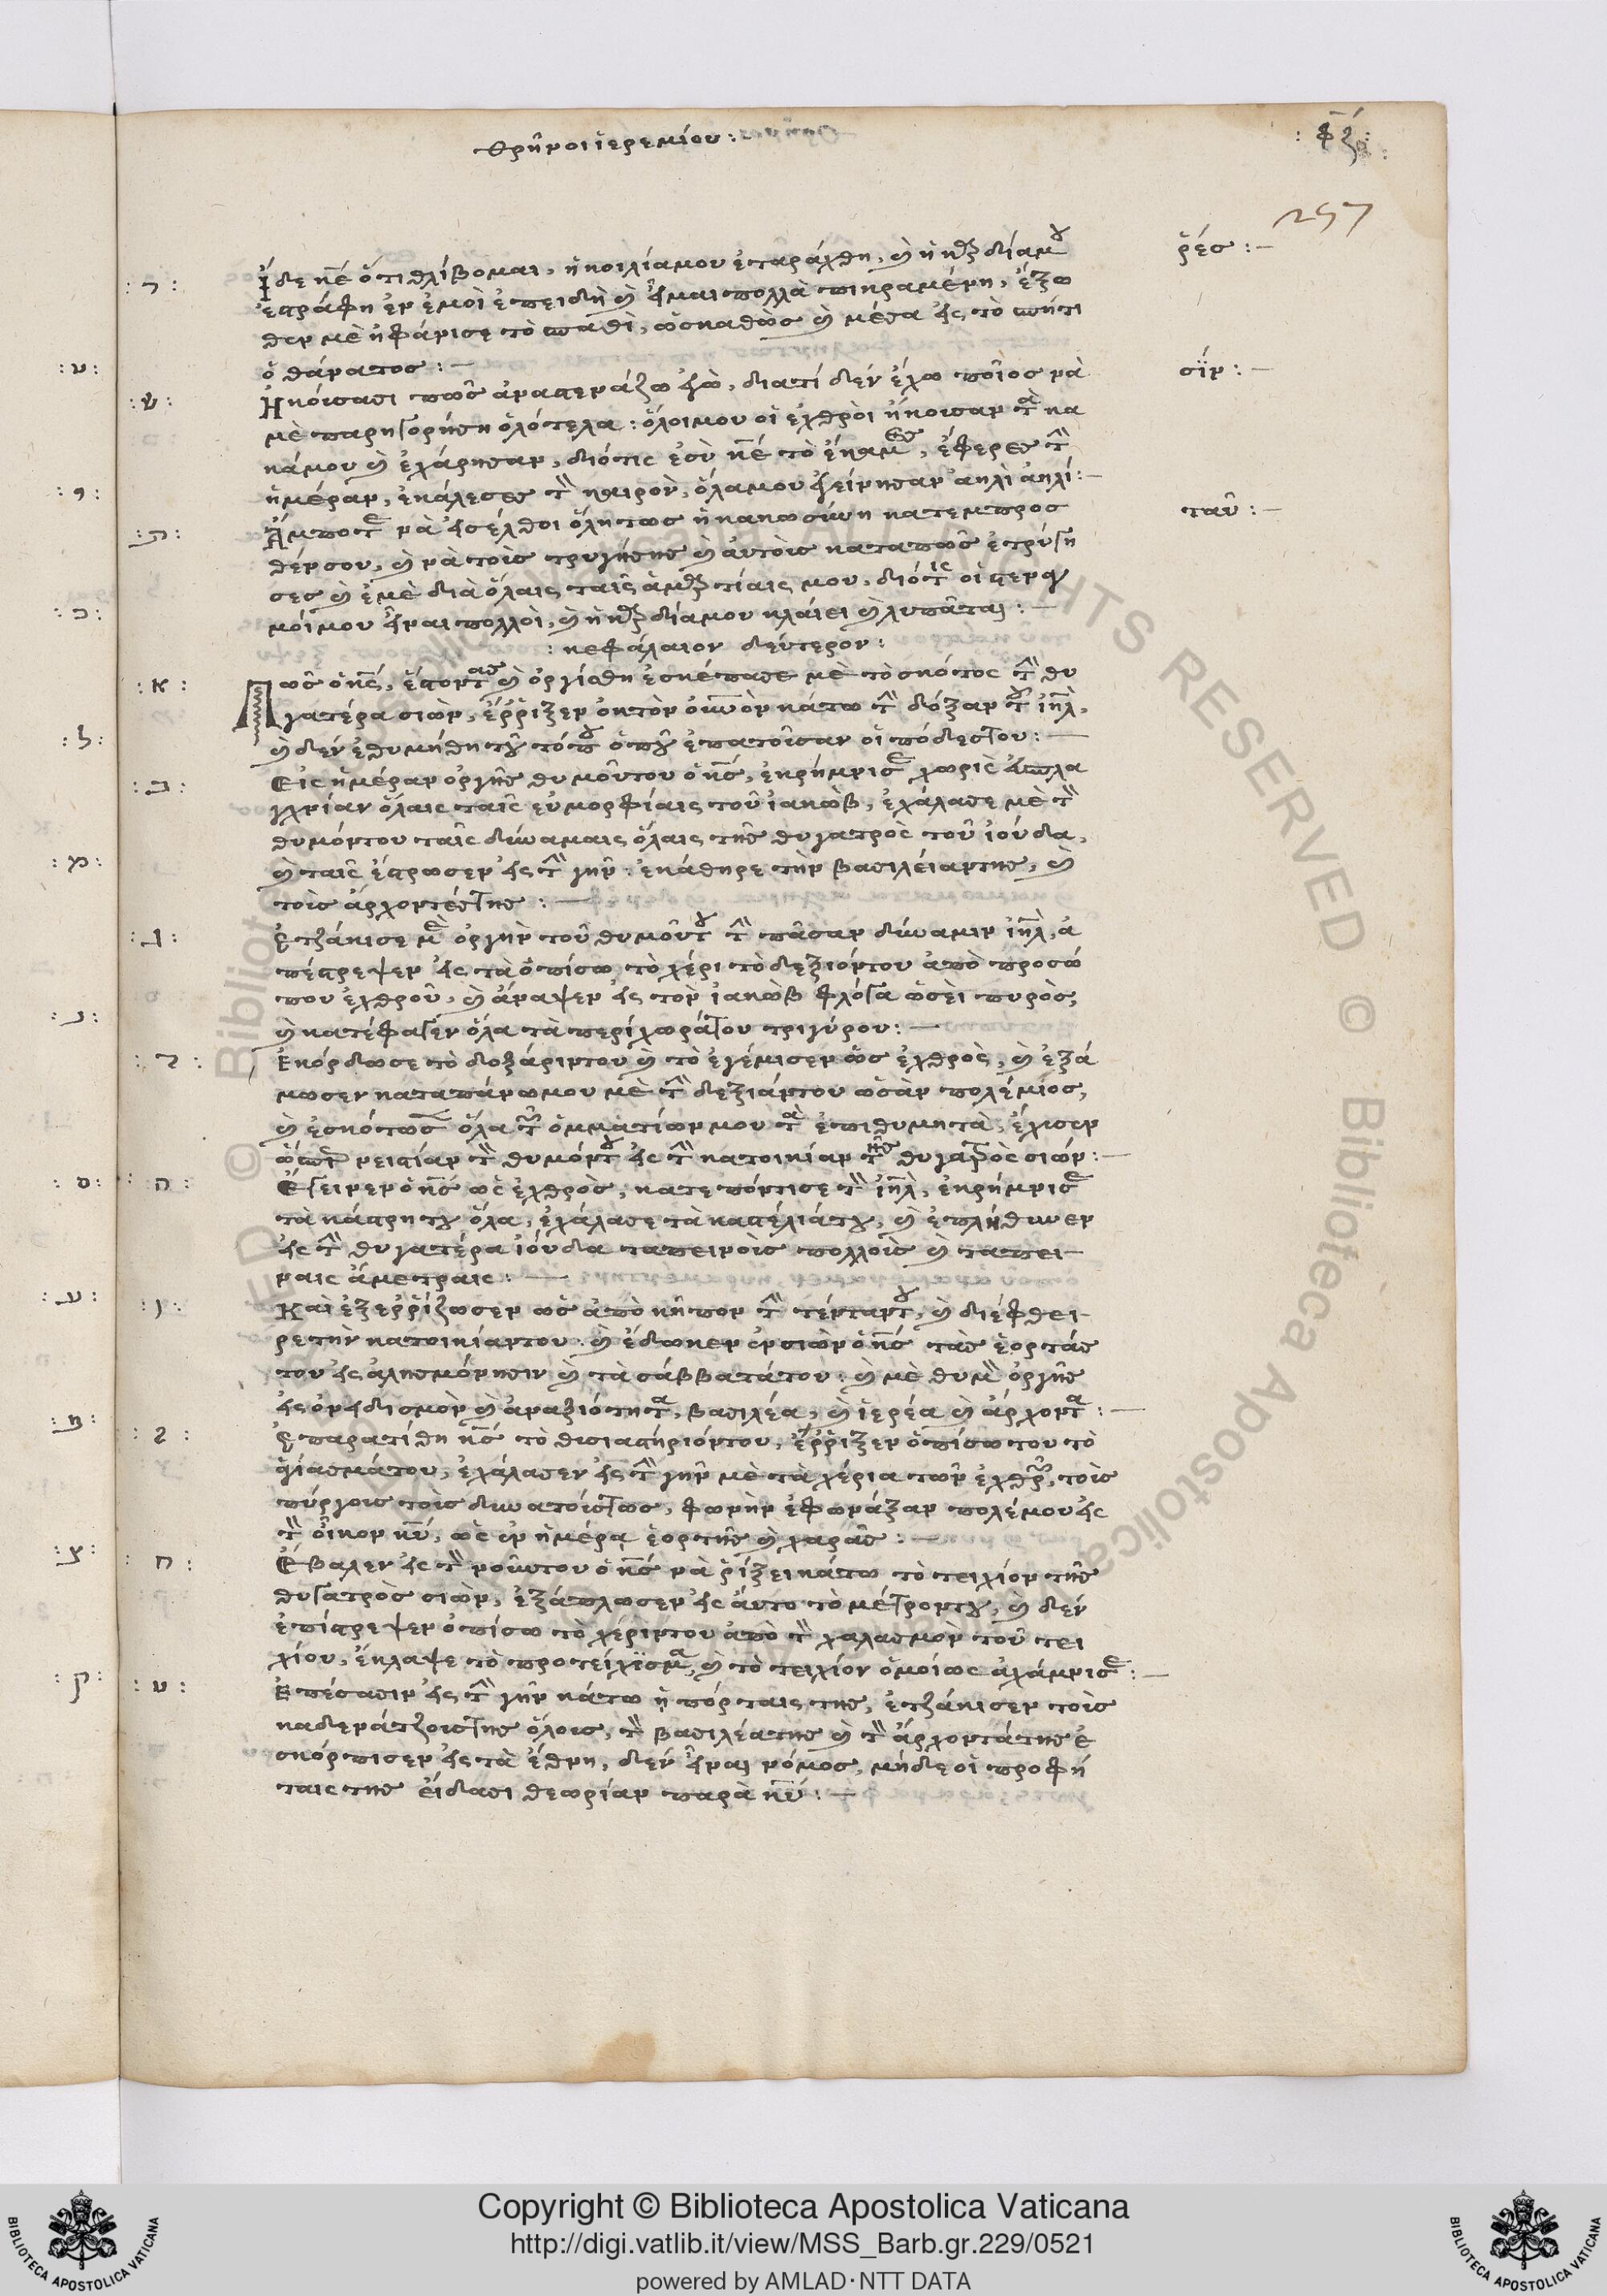 θρῆνοι ἱερεμίου :
: φξ :
257
ῥές : —
: ר :
ἴδε κ̅ε̅ ὅτι θλίβομαι, ἡ κοιλία μου ἐταράχθη, καὶ ἡ καρδία μου
ἐστράφη ἐν ἐμοὶ ἐπειδὴ καὶ εἶμαι πολλὰ πικραμένη, ἔξω
θεν μὲ ἠφάνισε τὸ σπαθὶ, ὡσκαθὼς καὶ μέσα εἰς τὸ σπήτι
ὁ θάνατος : —
σίν : —
: ש :
Ηκούσασι πῶς ἀναστενάζω ἐγὼ, διατί δὲν ἔχω ποῖος νὰ
μὲ παρηγορήση ὁλότελα : ὅλοι μου οἱ ἐχθροὶ ἤκουσαν τὰ κα
κά μου καὶ ἐχάρησαν, διότις ἐσὺ κ̅ε̅ τὸ ἔκαμες, ἔφερες τὴν
ἡμέραν, ἐκάλεσες τὸν καιρὸν, ὅλα μου ἐγείνησαν
ταῦ : —
: ת :
Ἄμποτε νὰ εἰσέλθοι ὅλη τως ἡ κακωσύνη κατεμπροσ
θέν σου, καὶ νὰ τοὺς τρυγήσης καὶ αὐτοὺς καταπῶς ἐτρύγη
σες καὶ ἐμὲ διὰ ὅλαις ταῖς ἁμαρτίαις μου, διότις οἱ στεναγ
μοί μου εἶναι πολλοὶ, καὶ ἡ καρδία μου κλαίει καὶ λυπᾶται : —
: κεφάλαιον δεύτερον :
: א :
Πῶς ὁ κ̅ς̅, ἔστοντας καὶ ὀργίσθη ἐσκέπασε μὲ τὸ σκότος τὴν θυ
γατέρα σιὼν, ἔῤῥιξεν ἐκ τὸν οὐρανὸν κάτω τὴν δόξαν τοῦ ἰη̅λ̅,
καὶ δὲν ἐθυμήθη τοῦ τόπου ὁποῦ ἐπατοῦσαν οἱ πόδες του : —
: ב :
Εἰς ἡμέραν ὀργῆς θυμοῦ του ὁ κ̅ς̅, ἐκρήμνισε χωρὶς
ὅλαις ταῖς εὐμορφίαις τοῦ ἰακὼβ, ἐχάλασε μὲ τὸν
θυμόν του ταῖς δύναμαις ὅλαις τῆς θυγατρὸς τοῦ ἰούδα,
καὶ ταῖς ἔστρωσεν εἰς τὴν γῆν : τὴν βασιλείαν της, καὶ
τοὺς ἄρχοντές της : —
: ג :
Ετζάκισε μὲ ὀργὴν τοῦ θυμοῦ του τὴν πᾶσαν δύναμιν ἰη̅λ̅, ἀ
πέστρεψεν εἰς τὰ ὀπίσω τὸ χέρι τὸ δεξιόν του ἀπὸ προσώ
που ἐχθροῦ, καὶ ἄναψεν εἰς τὸν ἰακὼβ φλόγα ὡσεὶ πυρὸς,
καὶ κατέφαγεν ὅλα τὰ περίχωρά του τριγύρου : —
: ד :
Εκόρδωσε τὸ δοξάριν του καὶ τὸ ἐγέμισεν ὡς ἐχθρὸς, καὶ ἐξά
μωσεν καταπάνω μου μὲ τὴν δεξιάν του ὡσὰν πολέμιος,
καὶ ἐσκότωσε ὅλα τῶν ὀμματίων μου τὰ ἐπιθυμητὰ, ἔχισεν
ὥσπερ νεστίαν τὸν θυμόν του εἰς τὴν κατοικίαν τῆς θυγατρὸς σιών : —
: ה :
Εγεινεν ὁ κ̅ς̅ ὡς ἐχθρὸς, κατεπόντισε τὸν ἰη̅λ̅, ἐκρήμνισε
τὰ κάστρη του ὅλα, ἐχάλασε τὰ καστέλιά του, καὶ ἐπλήθυνεν
εἰς τὴν θυγατέρα ἰούδα ταπεινοὺς πολλοὺς καὶ ταπει-
ναις ἄμετραις : —
: ו :
Καὶ ἐξερρίζωσεν ὡς ἀπὸ κῆπον τὴν τένταν του, καὶ διέφθει-
ρε τὴν κατοικίαν του : καὶ ἔδωκεν ἐν σιὼν ὁ κ̅ς̅ τὰς ἑορτάς
του εἰς ἀλησμόνησιν καὶ τὰ σάββατά του : καὶ μὲ θυμὸν ὀργῆς
εἰς ὀνειδισμὸν καὶ ἀναξιότητα, βασιλέα, καὶ ἱερέα καὶ ἄρχοντα : —
: ז :
Επαρατίθη κ̅ς̅ τὸ θυσιαστήριόν του, ἔῤῥιξεν ὀπίσω του τὸ
ἁγίασμά του, ἐχάλασεν εἰς τὴν γῆν μὲ τὰ χέρια τῶν ἐχθρῶν, τοὺς
πύργους τοὺς δυνατούς τως, φωνὴν ἐφωνάξαν πολέμου εἰς
τὸν οἶκον κ̅υ̅, ὡς ἐν ἡμέρα ἑορτῆς καὶ χαρᾶς : —
: ח :
Εβαλεν εἰς τὸν νοῦν του ὁ κ̅ς̅ νὰ ῥίξει κάτω τὸ τειχίον τῆς
θυγατρὸς σιὼν, ἐξάπλωσεν εἰς αὐτο τὸ μέτρον του, καὶ δὲν
ἐπίστρεψεν ὀπίσω τὸ χέριν του ἀπὸ τὸν χαλασμὸν τοῦ τει
χίου, ἔκλαψε τὸ προτείχισμα, καὶ τὸ τειχίον ὁμοίως ἀχάμνισε : —
: ט :
Επέσασιν εἰς τὴν γῆν κάτω ἡ πόρταις της, ἐτζάκισεν τοὺς
καδενάτζους της ὅλους, τὸν βασιλέα της καὶ τὸν ἄρχοντά της ἐ
σκόρπισεν εἰς τὰ ἔθνη, δὲν εἶναι νόμος, μήδε οἱ προφή
ταις της εἴδασι θεωρίαν παρὰ κ̅υ̅ : —
: ט :
: י :
: כ :
: ל :
: מ :
: נ :
: ס :
: ע :
: פ :
: צ :
: ק :
Copyright © Biblioteca Apostolica Vaticana
http://digi.vatlib.it/view/MSS_Barb.gr.229/0521
powered by AMLAD·NTT DATA
BIBLIOTECA APOSTOLICA VATICANA
BIBLIOTECA APOSTOLICA VATICANA